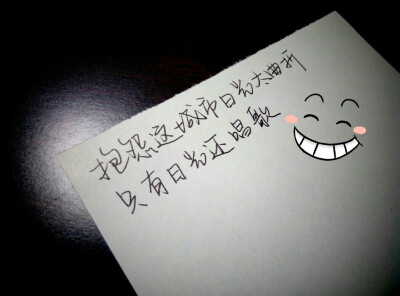 抱怨这城市日光太曲折
只有日光还唱歌